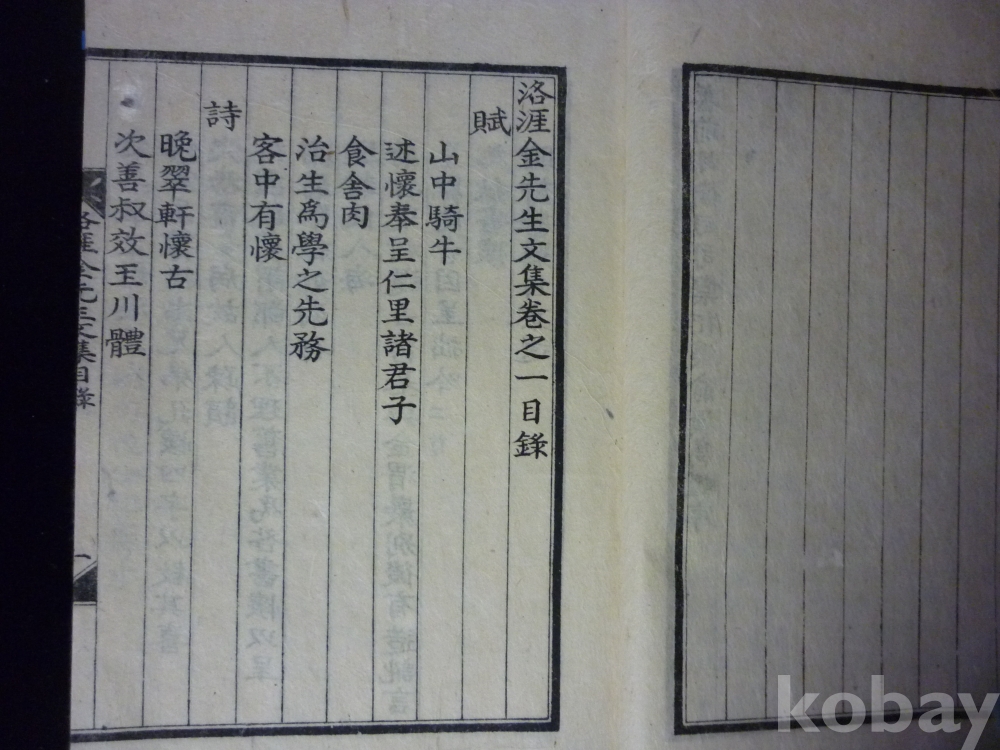 洛涯金先生文集卷之一目錄
賦
山中騎牛
述懷奉呈仁里諸君子
食舍肉
治生爲學之先務
客中有懷
詩
晚翠軒懷古
次善叔效玉川體
洛涯金先生文集目錄
一
kobay